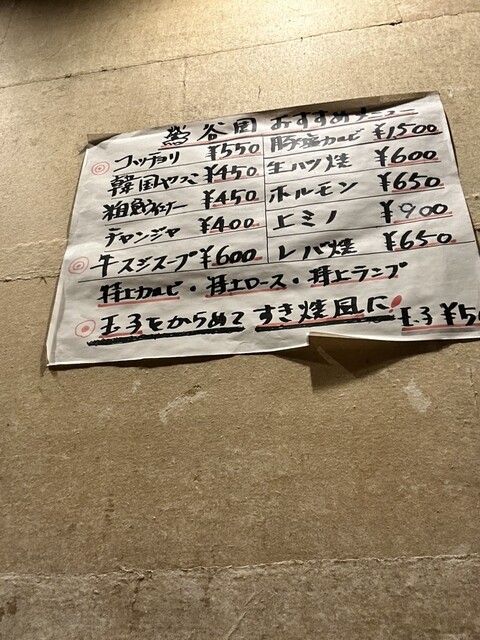 鶯谷園 おすすめメニュー
コッチョリ ¥550
韓国ヤッコ ¥450
粗挽ウインナー ¥450
チャンジャ ¥400
牛スジスープ ¥600
豚塩カルビ ¥1,500
生ハツ焼 ¥600
ホルモン ¥650
上ミノ ¥900
レバ焼 ¥650
特上カルビ・特上ロース・特上ランプ
玉子をからめて すき焼風に! 玉子 ¥50